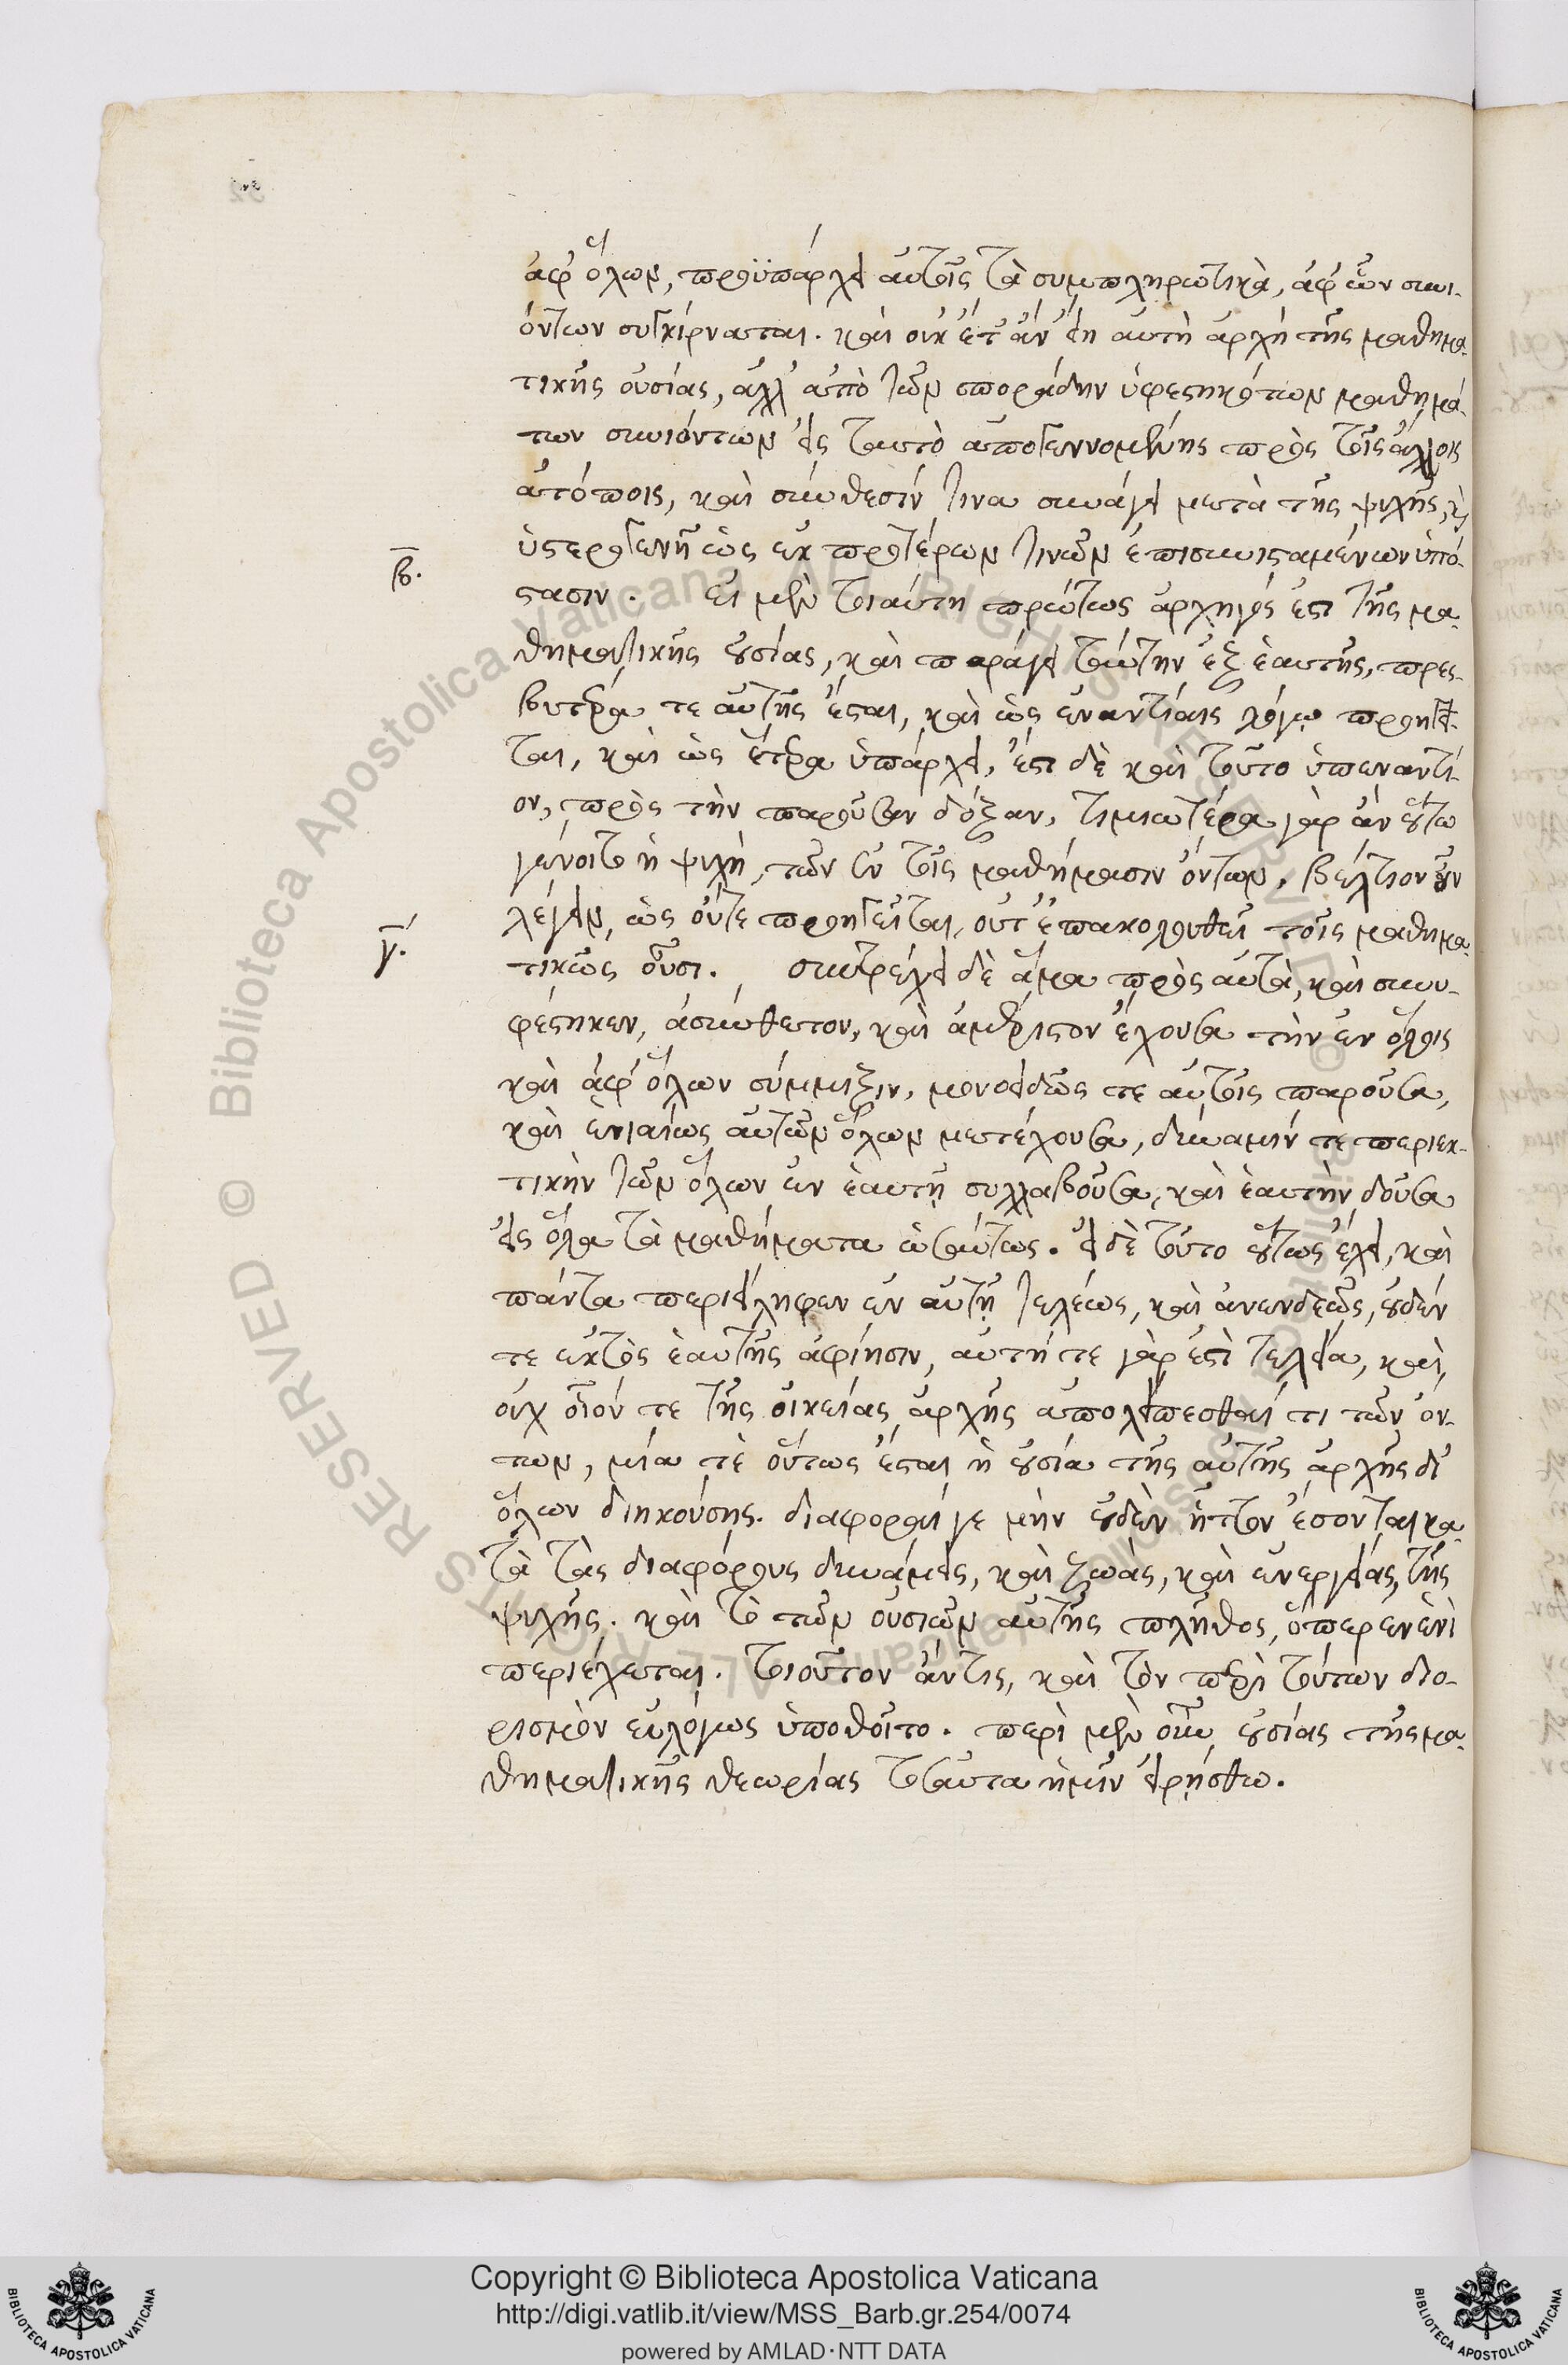 ἀφ' ὅλων, προϋπάρχει αὐτοῖς τὰ συμπληρωτικὰ, ἀφ' ὧν συνι-
όντων συγκίρναται. καὶ οὐκ ἔτ' ἂν εἴη αὐτὴ ἀρχὴ τῆς μαθημα-
τικῆς οὐσίας, ἀλλ' ἀπὸ τῶν σποράδην ὑφεστηκότων μαθημά-
των συνιόντων εἰς ταυτὸ ἀπογεννομένης πρὸς τοῖς ἄλλοις
ἀτόποις, καὶ σύνθεσίν τινα συνάγει μετὰ τῆς ψυχῆς, καὶ
ὑστερογενῆ ὡς ἐκ προτέρων τινῶν ἐπισυνισταμένων ὑπό-
β.
στασιν. εἰ μὲν τοιαύτη πρώτως ἀρχηγός ἐστι τῆς μα-
θηματικῆς οὐσίας, καὶ παράγει ταύτην ἐξ ἑαυτῆς, πρεσ-
βυτέρα τε αὐτῆς ἔσται, καὶ ὡς ἐναντίαις λόγῳ προηγεῖ-
ται, καὶ ὡς ἑτέρα ὑπάρχει, ἔστι δὲ καὶ τοῦτο ὑπεναντί-
ον, πρὸς τὴν παροῦσαν δόξαν, τιμιωτέρα γὰρ ἂν οὕτω
γένοιτο ἡ ψυχὴ, τῶν ἐν τοῖς μαθήμασιν ὄντων. βέλτιον οὖν
λέγειν, ὡς οὔτε προηγεῖται, οὔτ' ἐπακολουθεῖ τοῖς μαθημα-
γ.
τικῶς οὖσι. συντρέχει δὲ ἅμα πρὸς αὐτὰ, καὶ συνυ-
φέστηκεν, ἀσύνθετον, καὶ ἀμέριστον ἔχουσα τὴν ἐν ὅλοις
καὶ ἀφ' ὅλων σύμμιξιν, μονοειδῶς τε αὐτοῖς παροῦσα,
καὶ ἑνιαίως αὐτῶν ὅλων μετέχουσα, δύναμίν τὲ περιεκ-
τικὴν τῶν ὅλων ἐν ἑαυτῇ συλλαβοῦσα, καὶ ἑαυτὴν δοῦσα
εἰς ὅλα τὰ μαθήματα ὡσαύτως. εἰ δὲ τοῦτο οὕτως ἔχει, καὶ
πάντα περιείληφεν ἐν αὐτῇ τελέως, καὶ ἀνενδεῶς, οὐδέν
τε ἐκτὸς ἑαυτῆς ἀφίησιν, αὐτή τε γὰρ ἐστὶ τελεία, καὶ
οὐχ οἷόν τε τῆς οἰκείας ἀρχῆς ἀπολείπεσθαί τι τῶν ὄν-
των, μία τὲ οὕτως ἔσται ἡ οὐσία τῆς αὐτῆς ἀρχῆς δι'
ὅλων διηκούσης. διαφοραί γε μὴν οὐδὲν ἧττον ἔσονται κα-
τὰ τὰς διαφόρους δυνάμεις, καὶ ζωὰς, καὶ ἐνεργείας, τῆς
ψυχῆς. καὶ τὸ τῶν οὐσιῶν αὐτῆς πλῆθος, ὅπερ ἐν ἑνὶ
περιέχεται. τοιοῦτον ἄν τις, καὶ τὸν περὶ τούτων διο-
ρισμὸν εὐλόγως ὑποθοῖτο. περὶ μὲν οὖν οὐσίας τῆς μα-
θηματικῆς θεωρίας τοσαῦτα ἡμῖν εἰρήσθω.
Copyright © Biblioteca Apostolica Vaticana
http://digi.vatlib.it/view/MSS_Barb.gr.254/0074
powered by AMLAD·NTT DATA